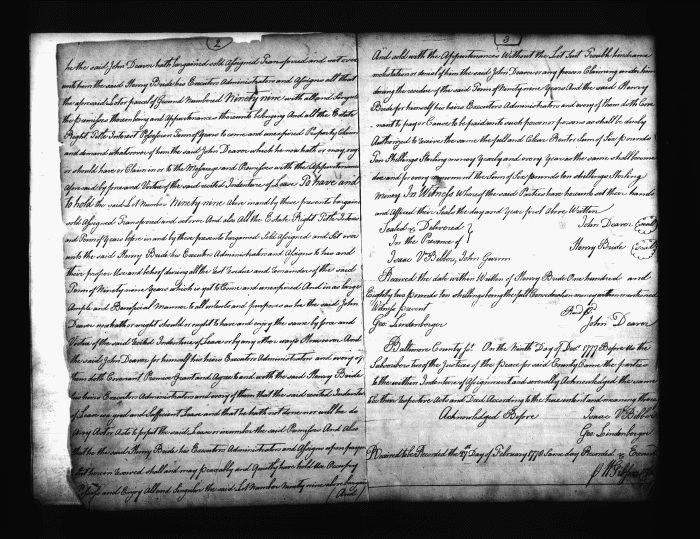 2
he the said John Deaver hath bargained sold Assigned Transfered and set over
unto him the said Henry Bride his Executors Administrators and Assigns all that
the aforesaid Lot or parcel of Ground Numbered Ninety nine with all and Singular
the premises thereon being and Appurtenances thereunto belonging And all the Estate
Right Title Interest Possession Term of Years to come and unexpired Property Claim
and demand whatsoever of him the said John Deaver which he now hath or may, can
or should have or Claim in or to the Message and Premises with the Appurtenances
Aforesaid by force and Virtue of the said recited Indenture of Lease To have and
to hold the said Lot Number Ninety nine above mand by these presents bargained
sold Assigned Transfered and setover And also All the Estate Right Title Interest
and Term of Years before in and by these presents bargained Sold Assigned and Set over
unto the said Henry Bride his Executors Administrators and Assigns to his and
their proper Use and behoof during all the rest residue and remainder of the said
Term of Ninety nine Years which is yet to Come and unexpired And in as large
Ample and Beneficial Manner to all intents and purposes as he the said John
Deaver now hath or ought should or ought to have and enjoy the same by force and
Virtue of the said recited Indenture of Lease or by any other ways However And
the said John Deaver for himself his heirs Executors Administrators and every of
them doth Covenant Promise Grant and Agree to and with the said Henry Bride
his heirs Executors Administrators and every of them that the said recited Indenture
of Lease is good and Sufficient Lease and that he hath not done nor will he do
any Act or Acts to the said Lease or incumber the said Premises And Also
that he the said Henry Bride his Executors Administrators and Assigns upon payment
shall and may peaceably and Quietly have hold Use Occupy
Possess and Enjoy All and Singular the said Lot Number Ninety nine
(And)
3
And sold with the Appurtenances Without the Let Suit Trouble hindrance
molestation or denial of him the said John Deaver or any person Claiming under him
during the residue of the said Term of Ninety nine Years And the said Henry
Bride for himself his heirs Executors Administrators and every of them do the Cove
nant to pay or Cause to be paid unto such person or persons as shall be duly
Authorized to receive the same the full and Clear Rent or Sum of Six pounds
Ten Shillings Sterling money Yearly and every Year as the same shall become
due and for every the Sum of Six pounds ten shillings Sterling
Money In Witness Whereof the said Parties have hereunto set their hands
and Affixed their Seals the day and Year first Above Written
Sealed & Delivered
In the Presence of
John Deaver (seal)
Henry Bride (seal)
Isaac John Gunn
Received the date within Written of Henry Bride One hundred and
Eighty two pounds ten shillings being the full Consideration money within mentioned
Witness present
Geo. Lindenberger
John Deaver
Baltimore County On the Ninth Day of Decr. 1777 Before Us the
Subscribers two of the Justices of the Peace for said County Came the parties
to the within Indenture of Assignment and severally Acknowledged the same
to be their respective Acts and Deed According to the true intent and meaning thereof
Acknowledged Before Isaac
Geo. Lindenberger
Received to be Recorded the Day of February 1778 Same day Recorded &